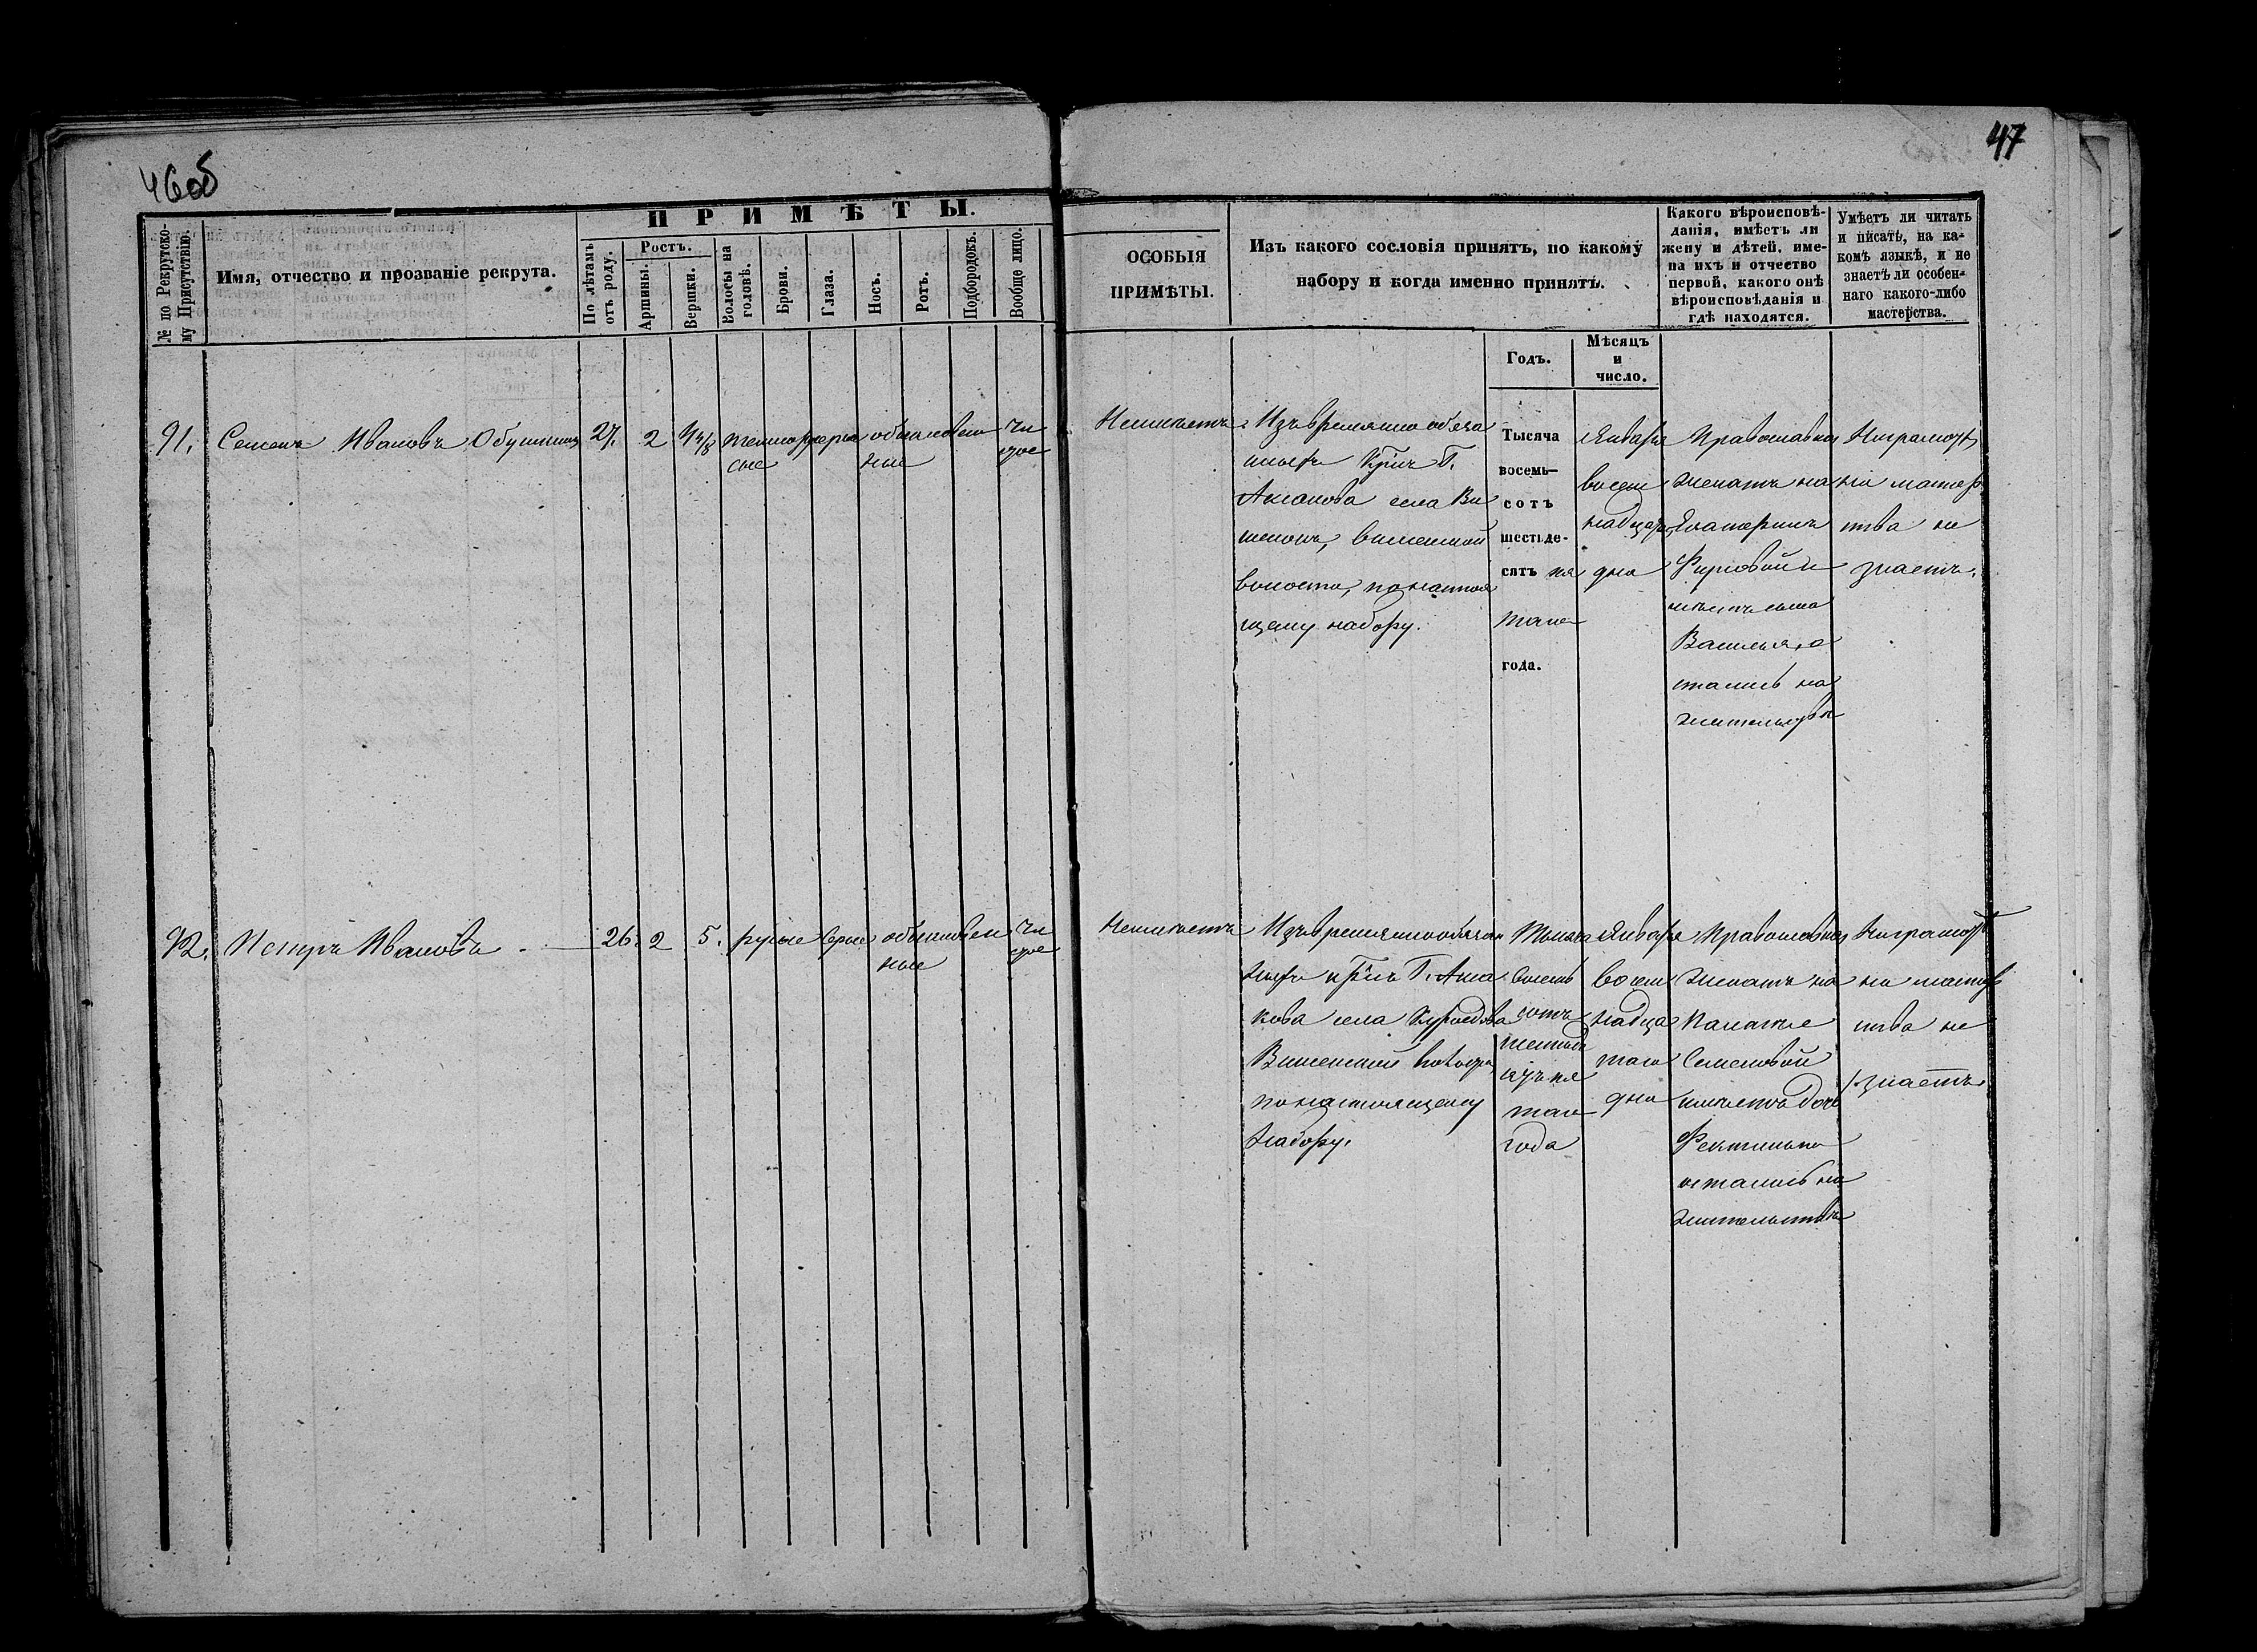 46об
47
ПРИМѢТЫ.
№ по Рекрутско-
му Присутствію.
Имя, отчество и прозваніе рекрута.
По лѣтамъ
отъ роду.
Ростъ.
Аршины.
Вершки.
Волосы на
головѣ.
Брови.
Глаза.
Носъ.
Ротъ.
Подбородокъ.
Вообще лицо.
ОСОБЫЯ
ПРИМѢТЫ.
Изъ какого сословія принятъ, по какому
набору и когда именно принятъ.
Какого вѣроисповѣ-
данія, имѣетъ ли
жену и дѣтей, име-
на ихъ и отчество
первой, какого онѣ
вѣроисповѣданія и
гдѣ находятся.
Умѣетъ ли читать
и писать, на ка-
комъ языкѣ, и не
знаетъ ли особен-
наго какого-либо
мастерства.
Годъ.
Мѣсяцъ
и
число.
91.
Семенъ Ивановъ
27.
2
темнору
сые
обыкновен
ные
чи
стое
Неимѣетъ
Изъ временно обяза
ныхъ Г.
Аксакова села Ви
волости, по настоя
щему набору.
Тысяча
восемь-
сотъ
шестьде-
сятъ пя
таго
года.
Января
восем
надцат
дня
Православнаго
женатъ на
Екатеринѣ
Фирсовой и
имѣетъ сына
Василья, о
стались на
жительствѣ
Неграмотн
ни мастер
ства не
знаетъ.
92.
Петръ Ивановъ
26.
2
5.
русые
серые
обыкновен
ные
чи
стое
Неимѣетъ
Изъ временнообязан
ныхъ Г. Акса
кова села Куроедова
волости
по настоящему
набору.
Тысяча
восемь
сотъ
шестьде
сятъ пя
таго
года
Января
восем
надца
таго
дня
Православнаго
женатъ на
Палагье
Семеновой
имѣетъ дочь
остались на
жительствѣ
Неграмотн
ни мастер
ства не
знаетъ.